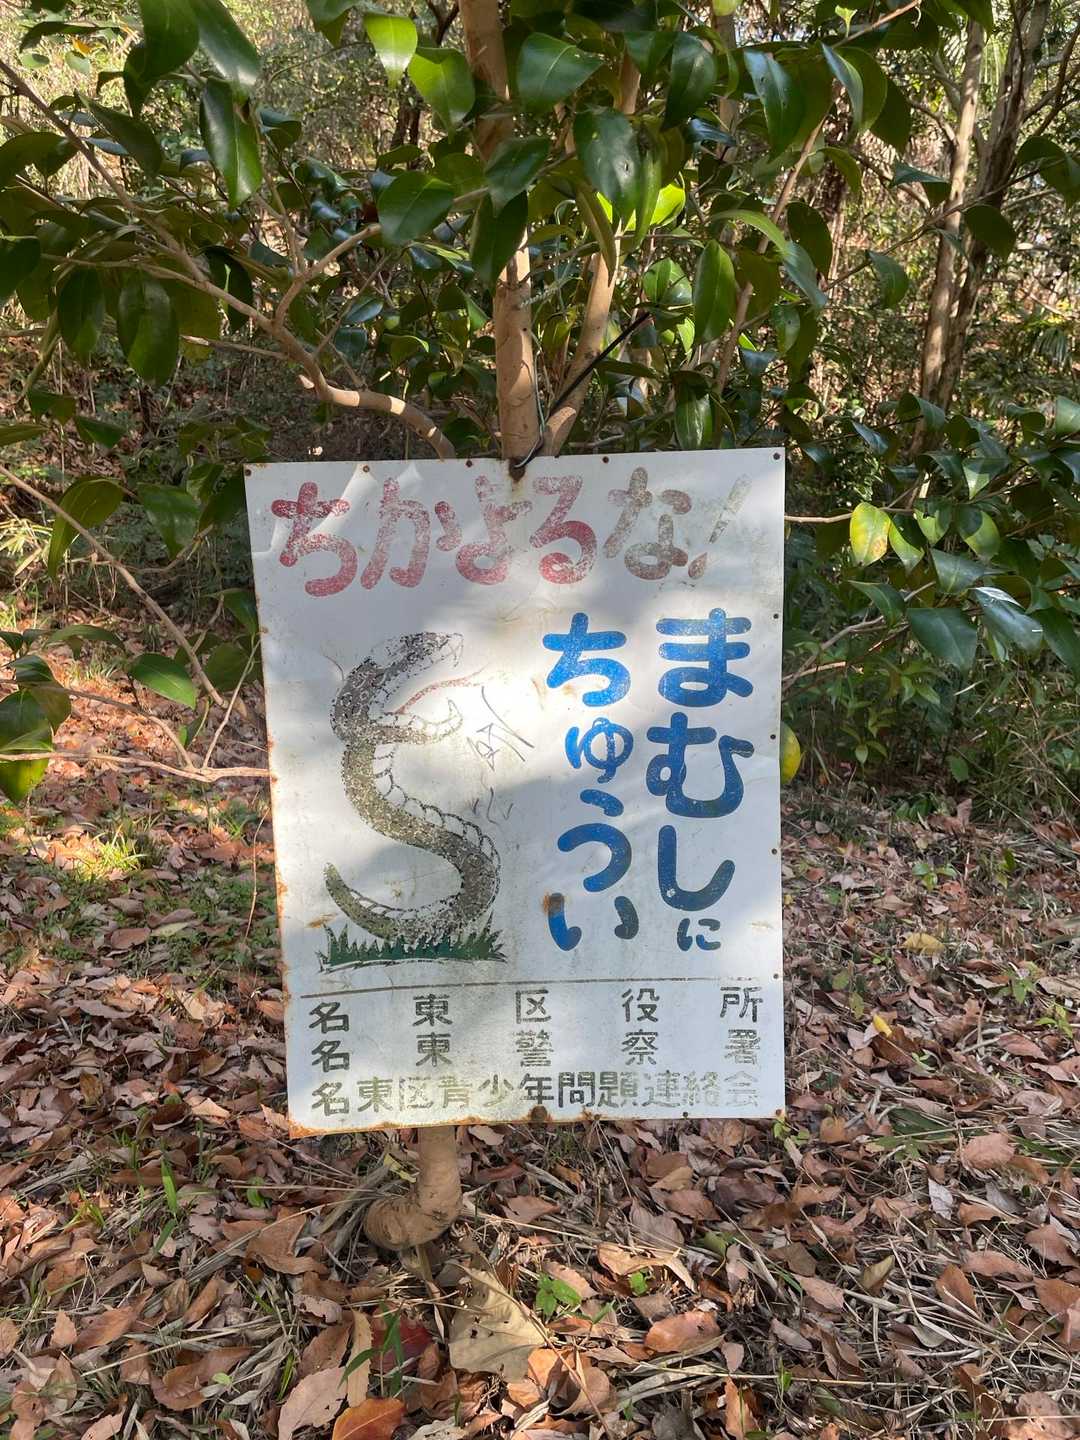 ちかよるな!
まむしに
ちゅうい
名東区役所
名東警察署
名東区青少年問題連絡会